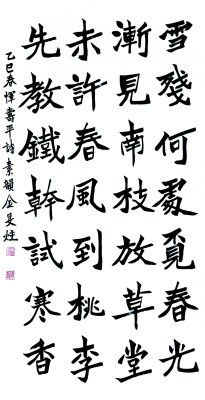 雪殘何處覔春光
漸見南枝放草堂
未許春風到桃李
先教鐵幹試寒香
乙巳春惲壽平詩素金長